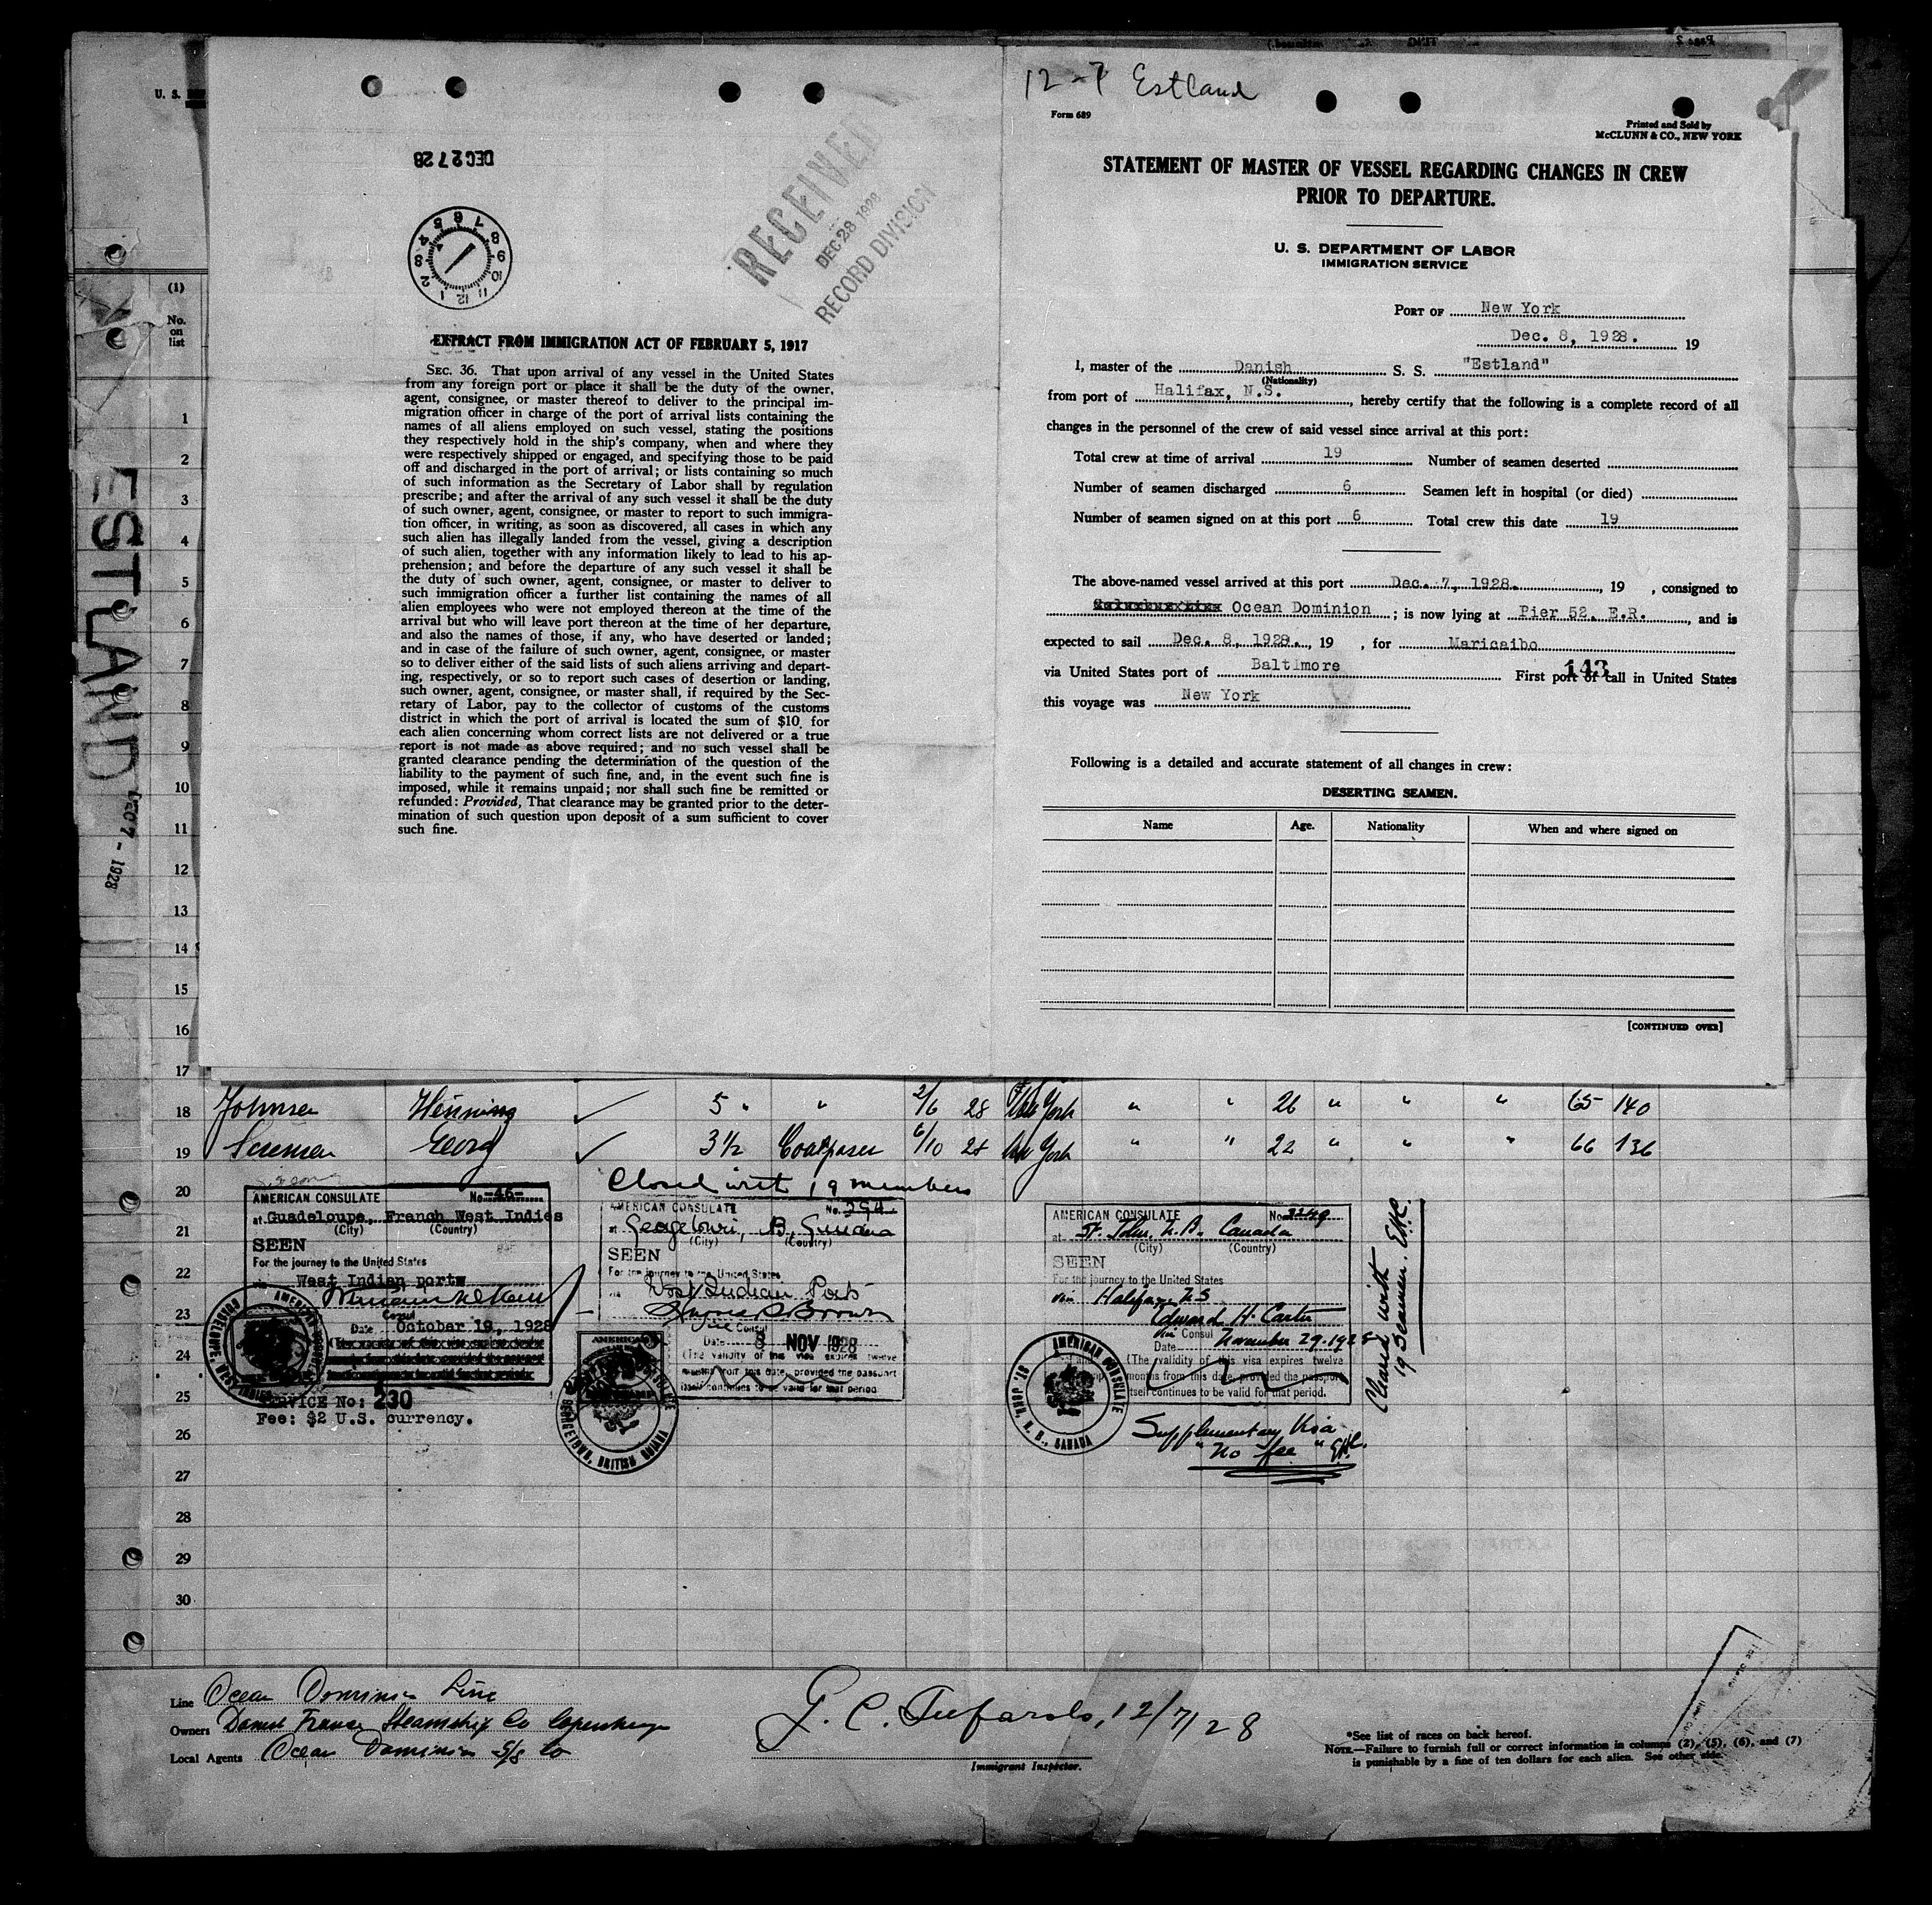 U. S.
(1)
No.
on
list
1
2
3
4
5
6
7
8
9
10
11
12
13
14
15
16
17
ESTLAND
DEC 7 - 1928
DEC 27 28
RECEIVED
DEC 28 1928
RECORD DIVISION
EXTRACT FROM IMMIGRATION ACT OF FEBRUARY 5, 1917
SEC. 36. That upon arrival of any vessel in the United States
from any foreign port or place it shall be the duty of the owner,
agent, consignee, or master thereof to deliver to the principal im-
migration officer in charge of the port of arrival lists containing the
names of all aliens employed on such vessel, stating the positions
they respectively hold in the ship's company, when and where they
were respectively shipped or engaged, and specifying those to be paid
off and discharged in the port of arrival; or lists containing so much
of such information as the Secretary of Labor shall by regulation
prescribe; and after the arrival of any such vessel it shall be the duty
of such owner, agent, consignee, or master to report to such immigra-
tion officer, in writing, as soon as discovered, all cases in which any
such alien has illegally landed from the vessel, giving a description
of such alien, together with any information likely to lead to his ap-
prehension; and before the departure of any such vessel it shall be
the duty of such owner, agent, consignee, or master to deliver to
such immigration officer a further list containing the names of all
alien employees who were not employed thereon at the time of the
arrival but who will leave port thereon at the time of her departure,
and also the names of those, if any, who have deserted or landed;
and in case of the failure of such owner, agent, consignee, or master
so to deliver either of the said lists of such aliens arriving and depart-
ing, respectively, or so to report such cases of desertion or landing,
such owner, agent, consignee, or master shall, if required by the Sec-
retary of Labor, pay to the collector of customs of the customs
district in which the port of arrival is located the sum of $10 for
each alien concerning whom correct lists are not delivered or a true
report is not made as above required; and no such vessel shall be
granted clearance pending the determination of the question of the
liability to the payment of such fine, and, in the event such fine is
imposed, while it remains unpaid; nor shall such fine be remitted or
refunded: Provided, That clearance may be granted prior to the deter-
mination of such question upon deposit of a sum sufficient to cover
such fine.
12-7 Estland
Form 689
Printed and Sold by
McCLUNN & CO., NEW YORK
STATEMENT OF MASTER OF VESSEL REGARDING CHANGES IN CREW
PRIOR TO DEPARTURE.
U. S. DEPARTMENT OF LABOR
IMMIGRATION SERVICE
PORT OF New York
Dec. 8, 1928. 19
I, master of the Danish S. S. "Estland"
(Nationality)
from port of Halifax, N.S., hereby certify that the following is a complete record of all
changes in the personnel of the crew of said vessel since arrival at this port:
Total crew at time of arrival 19 Number of seamen deserted
Number of seamen discharged 6 Seamen left in hospital (or died)
Number of seamen signed on at this port 6 Total crew this date 19
The above-named vessel arrived at this port Dec. 7, 1928. , 19 , consigned to
Ocean Dominion ; is now lying at Pier 52, E.R. , and is
expected to sail Dec. 8, 1928. , 19 , for Maricaibo
via United States port of Baltimore First port of call in United States
143
this voyage was New York
Following is a detailed and accurate statement of all changes in crew:
DESERTING SEAMEN.
Name Age. Nationality When and where signed on
[CONTINUED OVER]
18 Johnsen Henning ✓ 5 " " 2/6 28 New York " " 26 " " " 65 140
19 Sorensen Georg ✓ 3½ Coalpasser 6/10 28 New York " " 22 " " " 66 136
20 Closed with 19 members
21
22
23
24
25
26
27
28
29
30
AMERICAN CONSULATE No. -46-
at Guadeloupe, French West Indies
(City) (Country)
SEEN
For the journey to the United States
via West Indian ports
Consul
Date October 18, 1928
SERVICE No: 230
Fee: $2 U.S. currency.
AMERICAN CONSULATE No. 294
at Georgetown, B. Guiana
(City) (Country)
SEEN
For the journey to the United States
via West Indian Ports
Vice Consul
Date 8 NOV 1928
(The validity of this visa expires twelve
months from this date, provided the passport
itself continues to be valid for that period.
AMERICAN CONSULATE
GEORGETOWN, BRITISH GUIANA
AMERICAN CONSULATE No. 3249
at St. John, N.B. Canada
(City) (Country)
SEEN
For the journey to the United States
via Halifax NS
Edward H. Carter
Vice Consul
Date November 29-1928
(The validity of this visa expires twelve
months from this date, provided the passport
itself continues to be valid for that period.
AMERICAN CONSULATE
ST. JOHN, N. B., CANADA
Supplementary Visa
"No fee" EHC.
Cleared with
19 Seamen. EHC.
Line Ocean Dominion Line
Owners Dansk Franse Steamship Co Copenhagen
Local Agents Ocean Dominion S/S Co
12/7/28
Immigrant Inspector.
*See list of races on back hereof.
NOTE.—Failure to furnish full or correct information in columns (2), (5), (6), and (7)
is punishable by a fine of ten dollars for each alien. See other side.